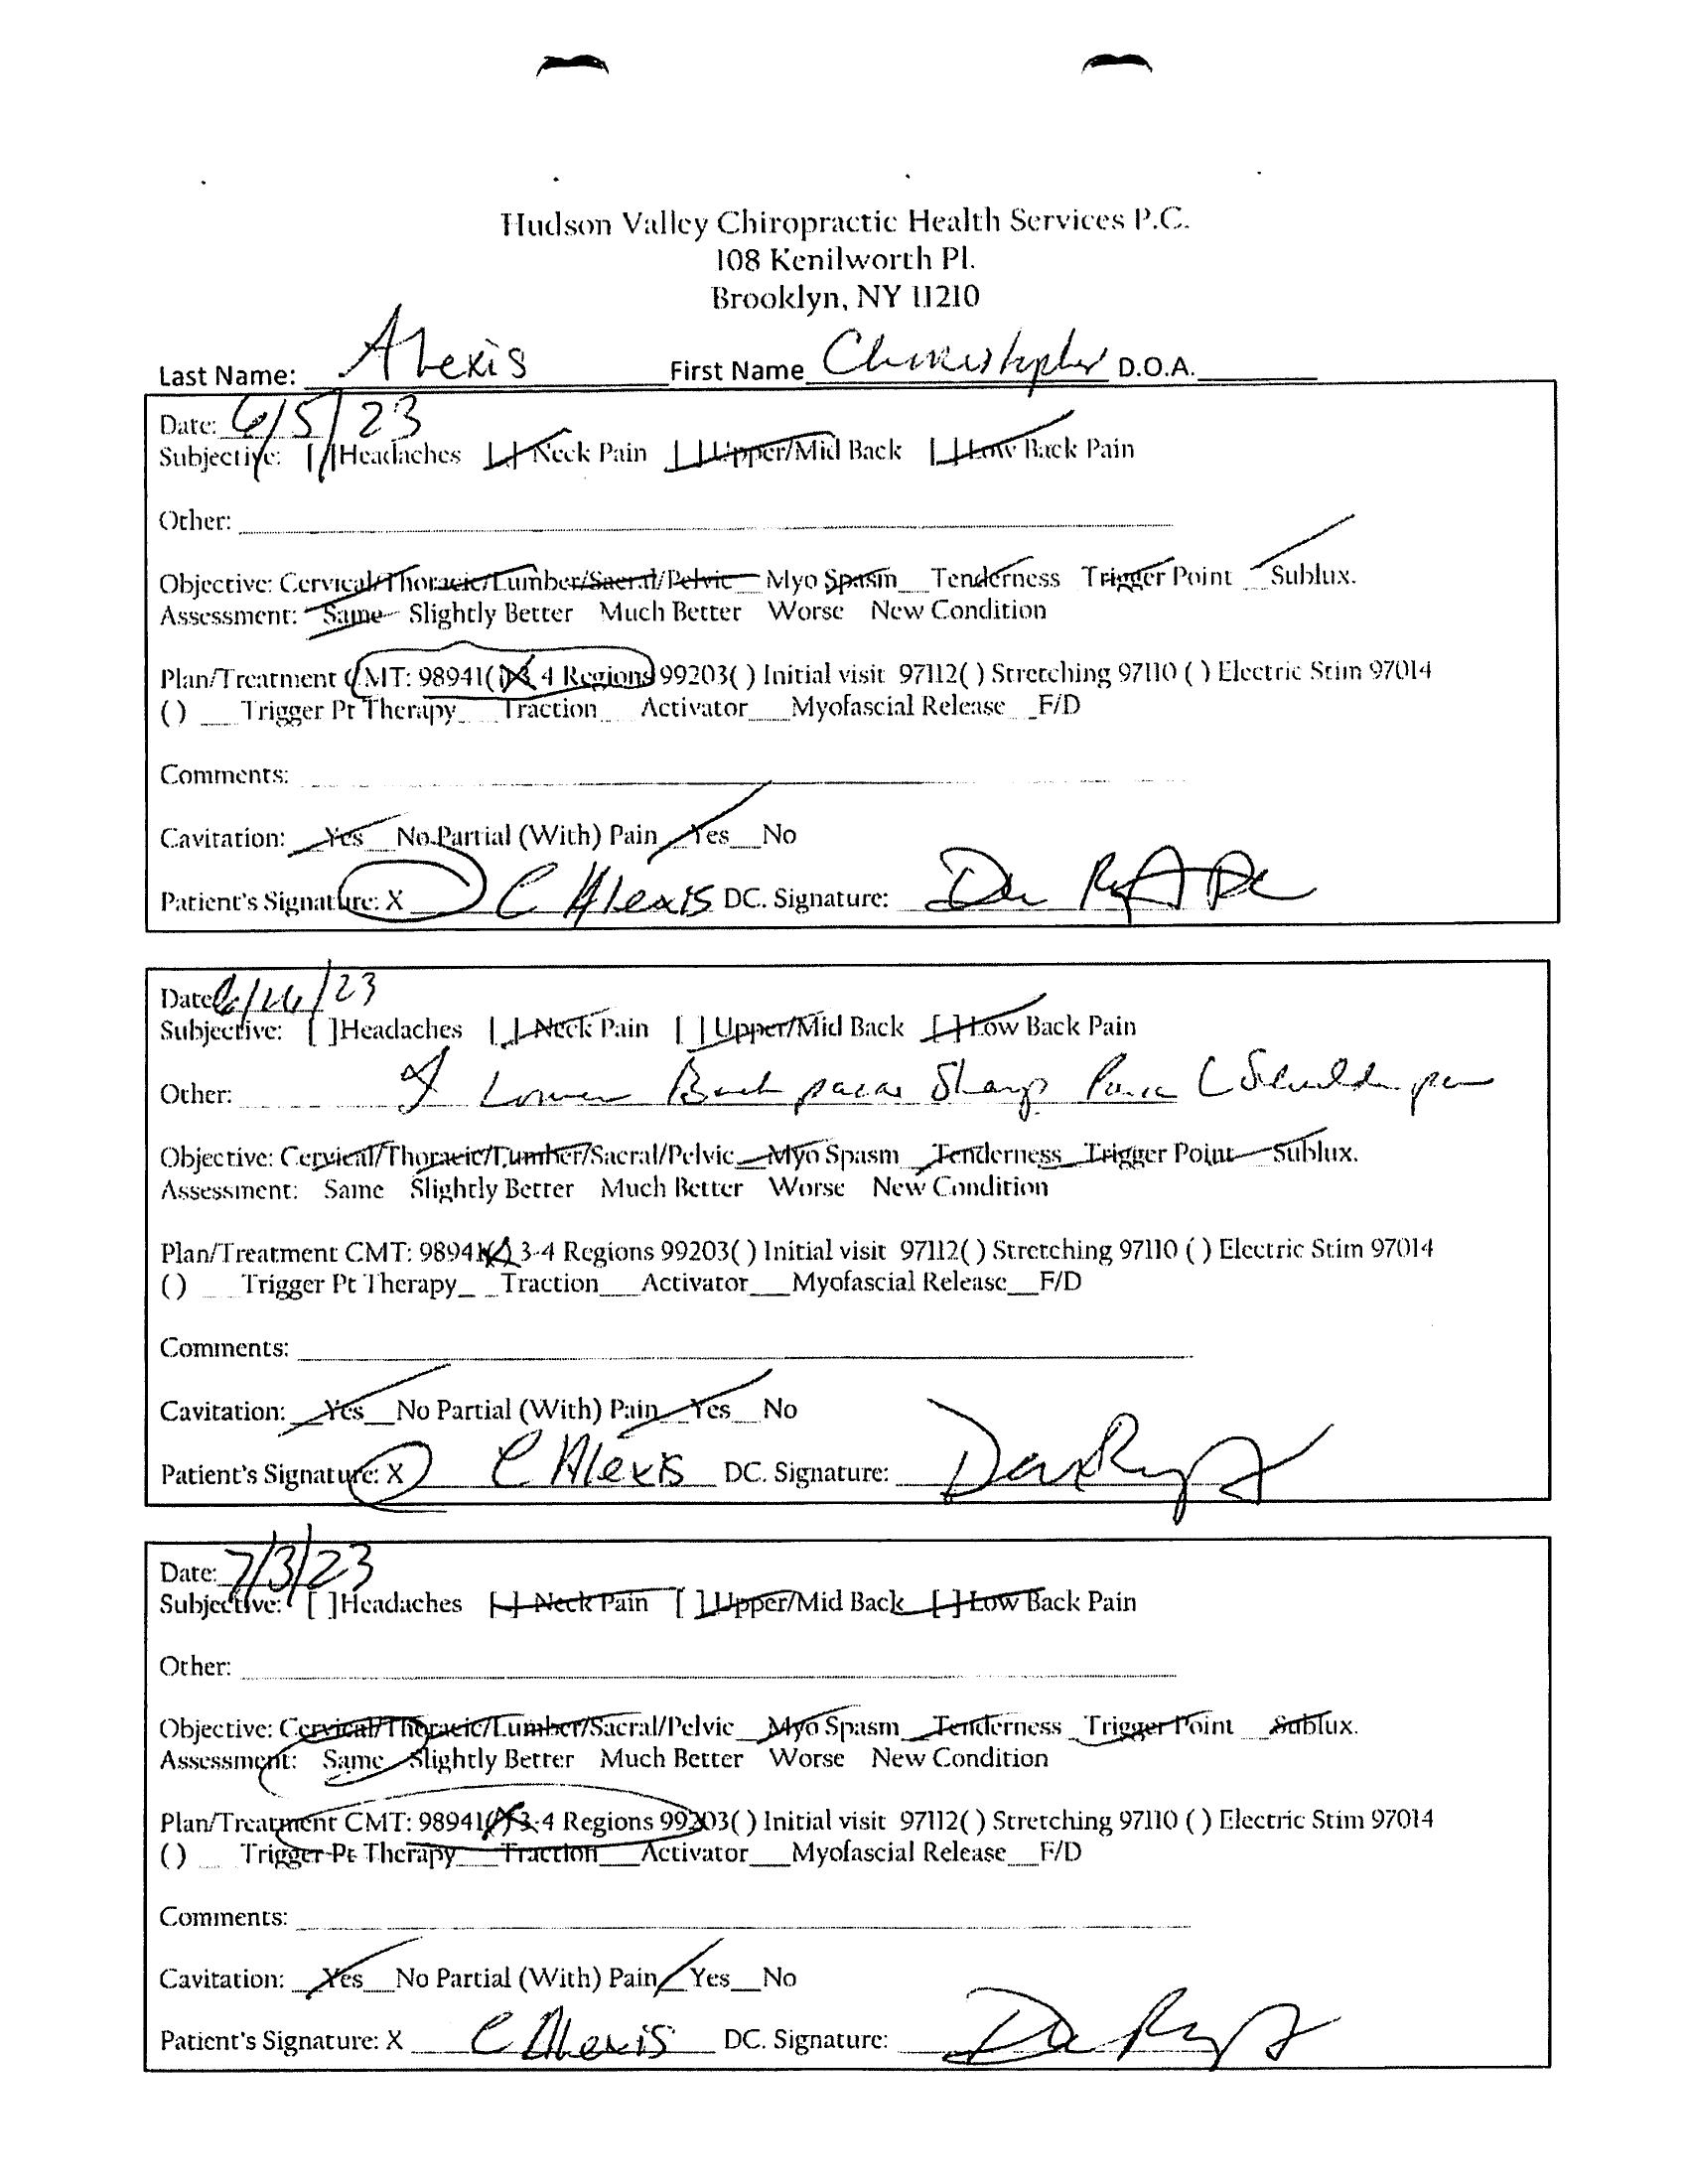 Hudson Valley Chiropractic Health Services P.C.
108 Kenilworth Pl.
Brooklyn, NY 11210
Last Name: Alexis First Name Christopher D.O.A.
Date: 6/5/23
Subjective: [ ]Headaches [ ] Neck Pain [ ] Upper/Mid Back [ ] Low Back Pain
Other:
Objective: Cervical/Thoracic/Lumber/Sacral/Pelvic Myo Spasm Tenderness Trigger Point Sublux.
Assessment: Same Slightly Better Much Better Worse New Condition
Plan/Treatment CMT: 98941( ) 3-4 Regions 99203( ) Initial visit 97112( ) Stretching 97110 ( ) Electric Stim 97014
( ) Trigger Pt Therapy Traction Activator Myofascial Release F/D
Comments:
Cavitation: Yes No Partial (With) Pain Yes No
Patient's Signature: X C Alexis DC. Signature:
Date: 6/26/23
Subjective: [ ]Headaches [ ] Neck Pain [ ] Upper/Mid Back [ ] Low Back Pain
Other: Lower Back pain Sharp Pain L Shoulder pain
Objective: Cervical/Thoracic/Lumber/Sacral/Pelvic Myo Spasm Tenderness Trigger Point Sublux.
Assessment: Same Slightly Better Much Better Worse New Condition
Plan/Treatment CMT: 98941( ) 3-4 Regions 99203( ) Initial visit 97112( ) Stretching 97110 ( ) Electric Stim 97014
( ) Trigger Pt Therapy Traction Activator Myofascial Release F/D
Comments:
Cavitation: Yes No Partial (With) Pain Yes No
Patient's Signature: X C Alexis DC. Signature:
Date: 7/3/23
Subjective: [ ]Headaches [ ] Neck Pain [ ] Upper/Mid Back [ ] Low Back Pain
Other:
Objective: Cervical/Thoracic/Lumber/Sacral/Pelvic Myo Spasm Tenderness Trigger Point Sublux.
Assessment: Same Slightly Better Much Better Worse New Condition
Plan/Treatment CMT: 98941( ) 3-4 Regions 99203( ) Initial visit 97112( ) Stretching 97110 ( ) Electric Stim 97014
( ) Trigger Pt Therapy Traction Activator Myofascial Release F/D
Comments:
Cavitation: Yes No Partial (With) Pain Yes No
Patient's Signature: X C Alexis DC. Signature: